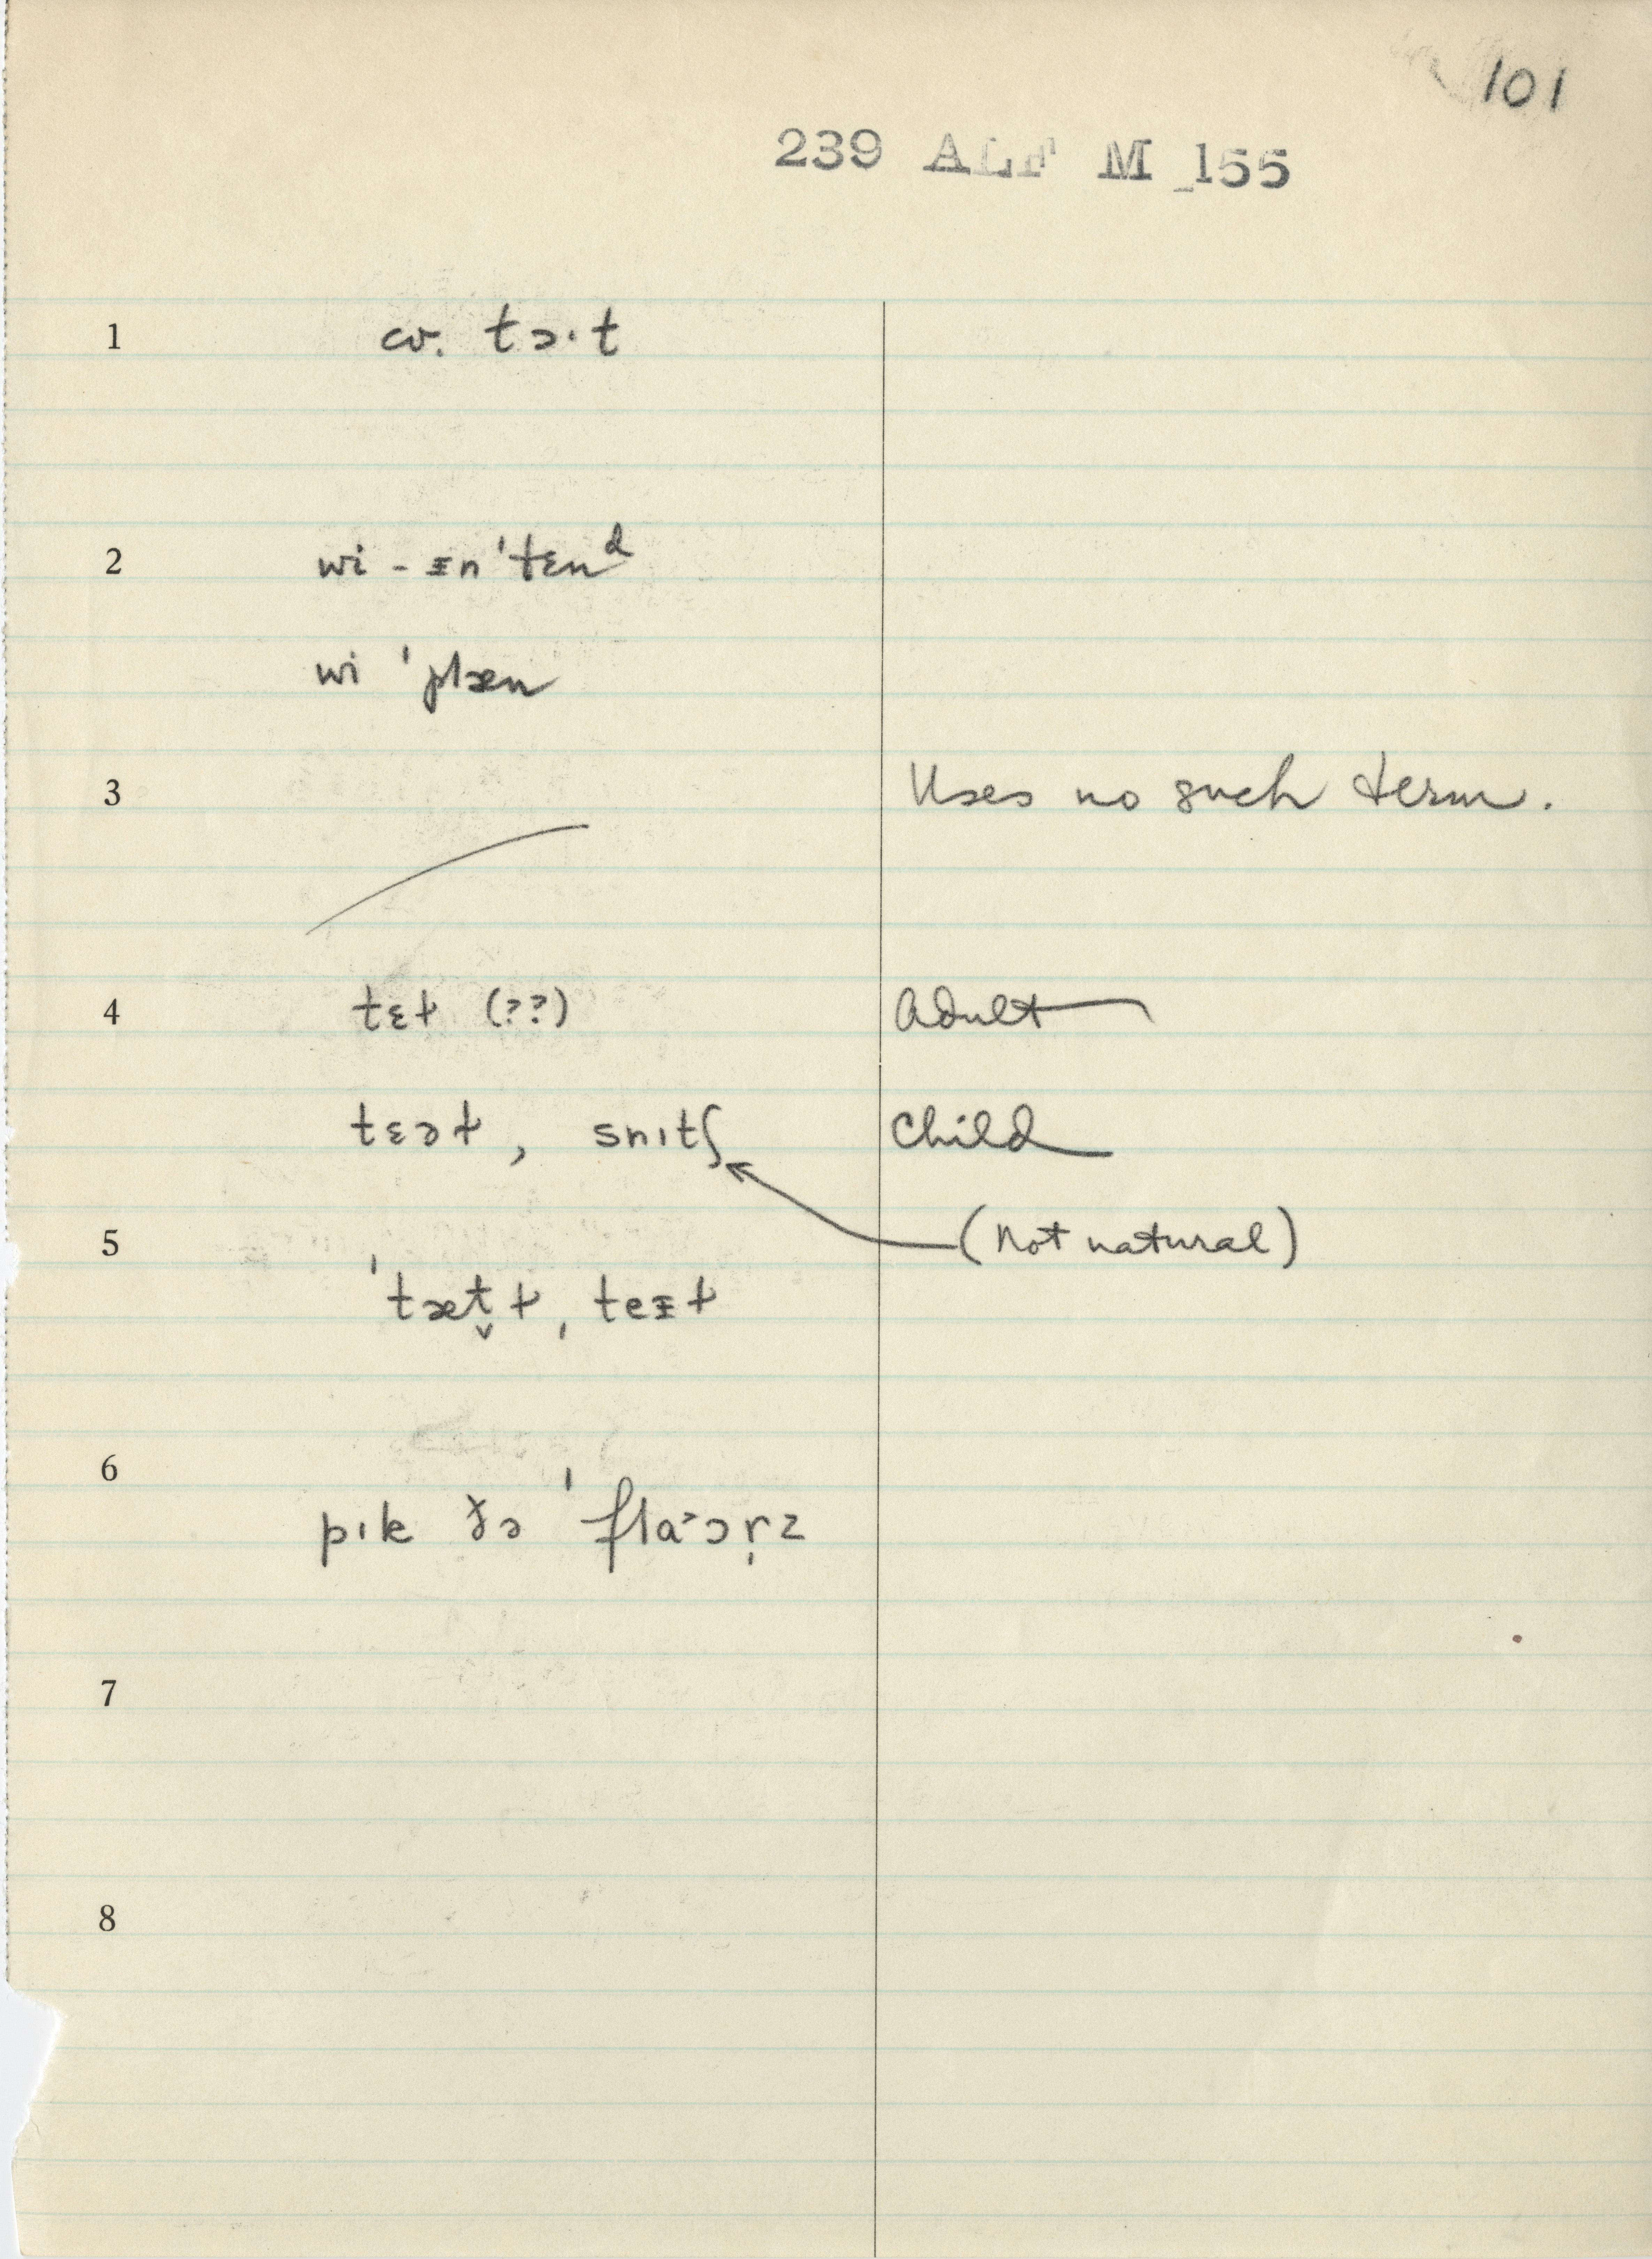 101
239 ALF M 155
1 cv. tɔ·t
2 wi - ᵻn ˈtɛnᵈ
wi ˈplæn
3 Uses no such term.
4 tɛɫ (??) Adult
tɛəɫ, snɪtʃ Child
5 (Not natural)
ˈtæt̬ɫ, teᵻɫ
6 pɪk ðə ˈflɑ˃ər̩z
7
8